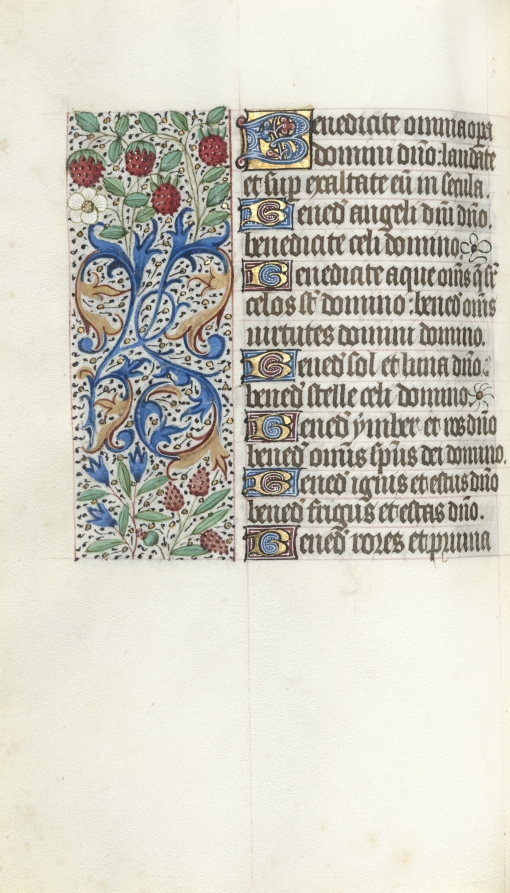 Benedicite omnia opa
domini dño: laudate
et sup exaltate eū in secula.
Bened̄ angeli dñi dño.
benedicite celi domino
Benedicite aque oīns q̄ sr̄
celos st̄ domino: bened̄ oīns
uirtutes domini domino.
Bened̄ sol et luna dño.
bened̄ stelle celi domino
Bened̄ ymber et ros dño
bened̄ omīs spūs dei domino.
Bened̄ ignis et estus dño
bened̄ frigus et estas dño.
Bened̄ rores et pruina